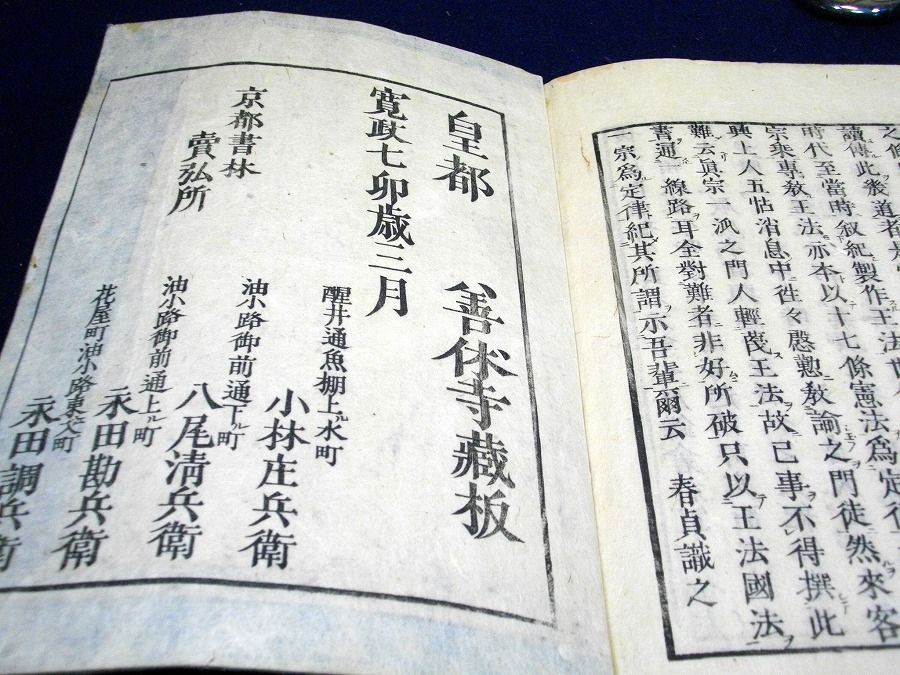 讀傳此後道者
時代至當時敍紀製作王法
宗衆專敎王法亦本以十七條憲法爲定
興上人五帖消息中徃々慇懃敎諭之門徒然來客
難云眞宗一派之門人輕蔑王法故已事不得撰此
書通一線路耳全對難者非好所破只以王法國法
一宗爲定律紀其所謂示吾輩爾云
春貞識之
皇都 善休寺藏板
寛政七卯歳三月
醒井通魚棚上ル水町
小林庄兵衛
京都書林
賣弘所
油小路御前通下ル町
八尾淸兵衛
油小路御前通上ル町
永田勘兵衛
花屋町油小路東入町
永田調兵衛